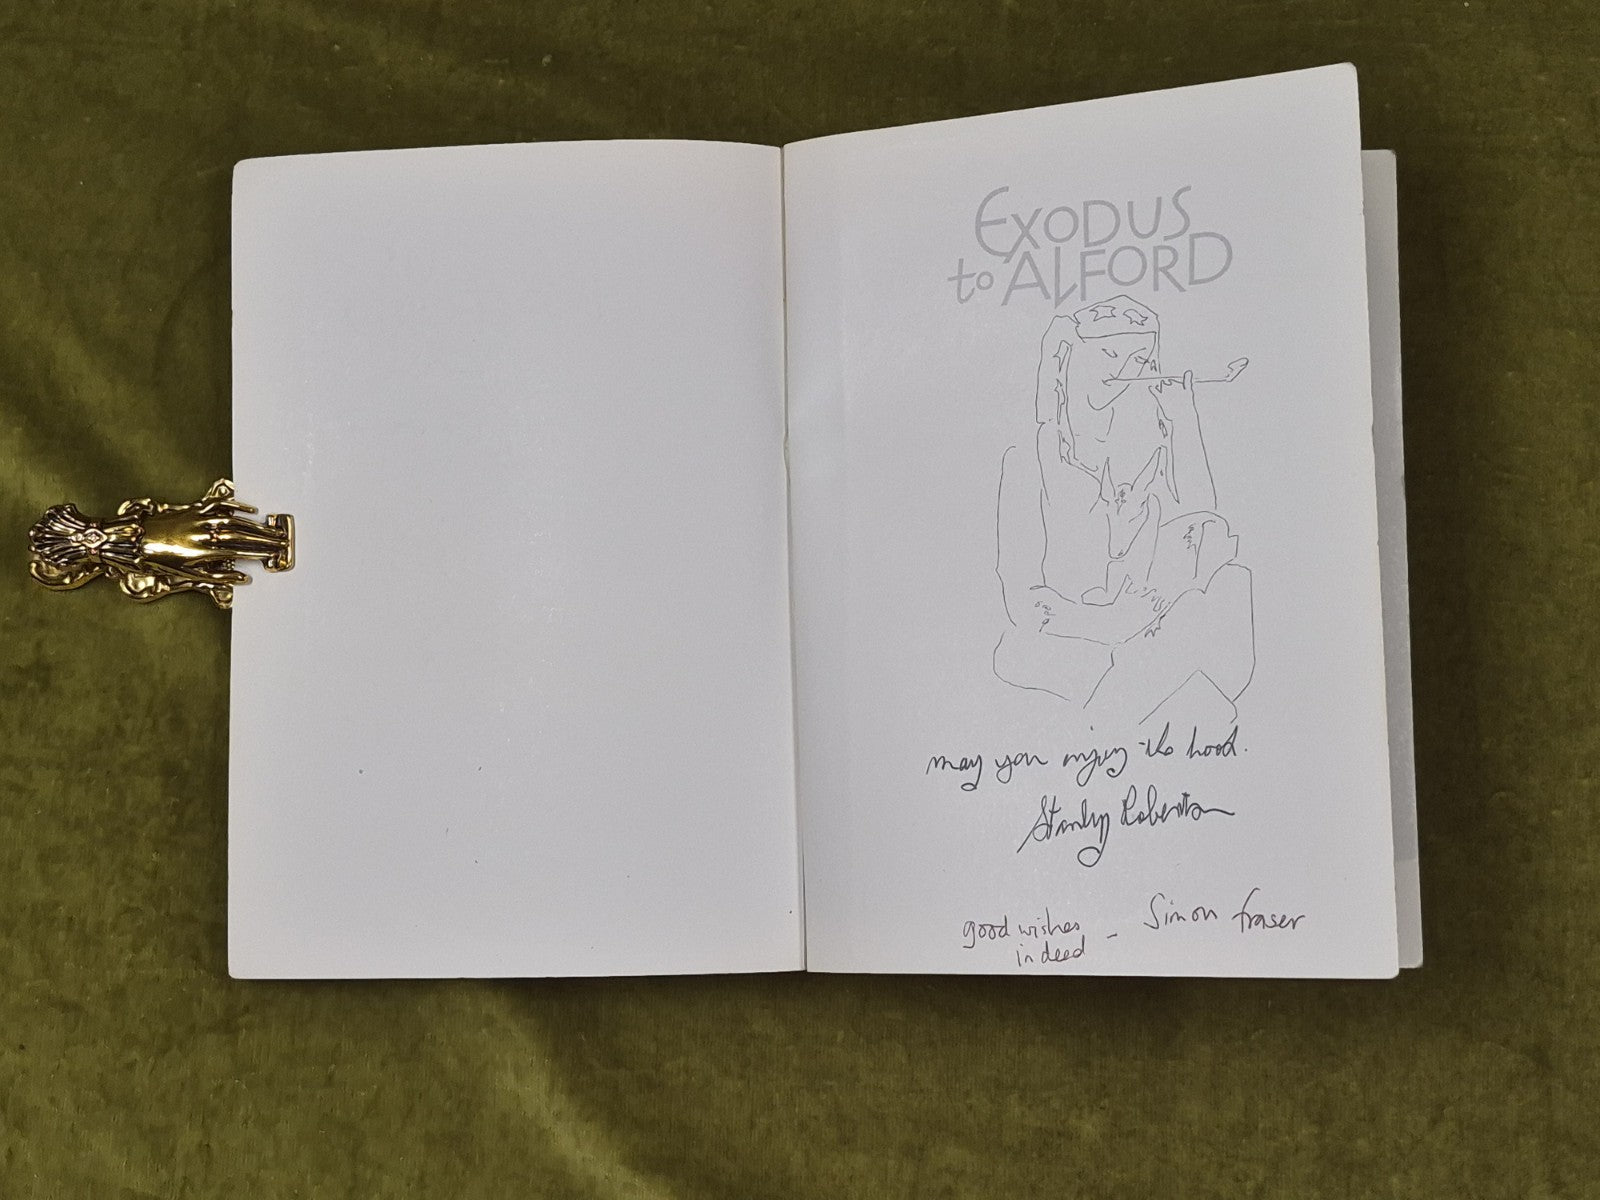 EXODUS
to ALFORD
may you enjoy the book.
Stanley Robertson
good wishes
indeed - Simon Fraser